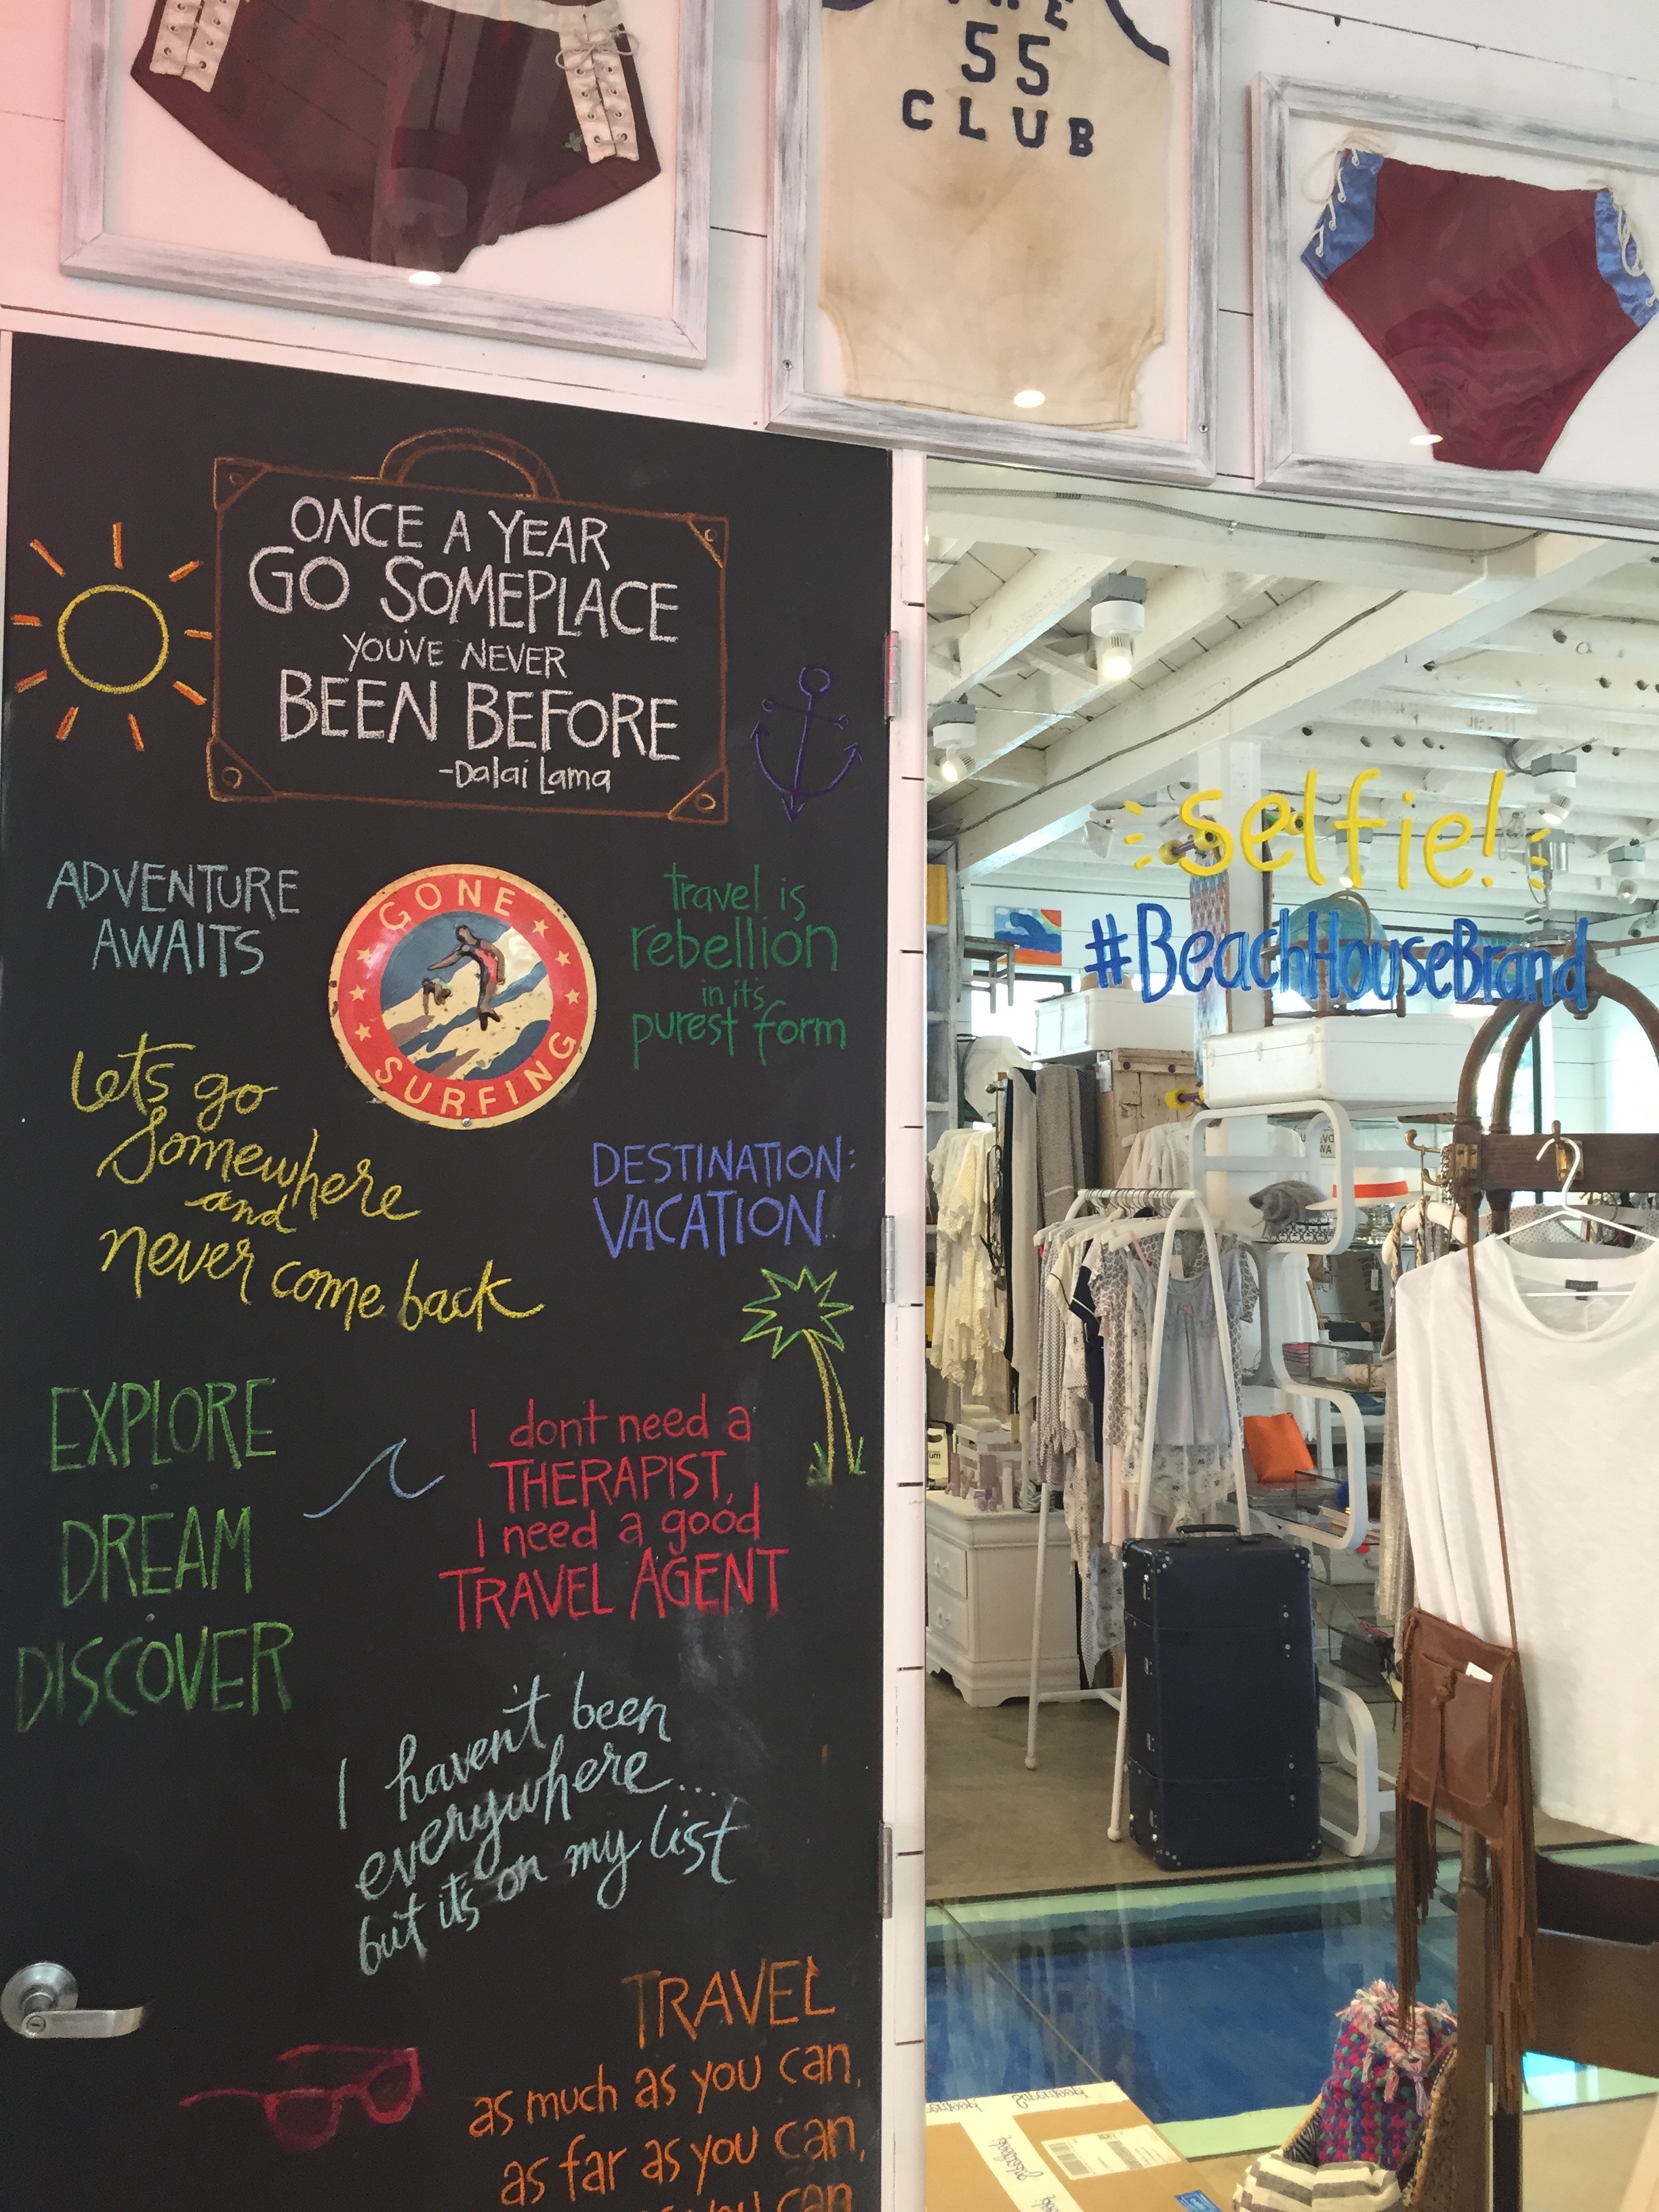 55
CLUB
ONCE A YEAR
GO SOMEPLACE
YOU'VE NEVER
BEEN BEFORE
-Dalai Lama
ADVENTURE
AWAITS
GONE
SURFING
travel is
rebellion
in it's
purest form
Let's go
somewhere
and
never come back
DESTINATION:
VACATION..
EXPLORE
DREAM
DISCOVER
I dont need a
THERAPIST,
I need a good
TRAVEL AGENT
I haven't been
everywhere...
but it's on my list
TRAVEL
as much as you can,
as far as you can,
you can
selfie!
#BeachHouseBrand